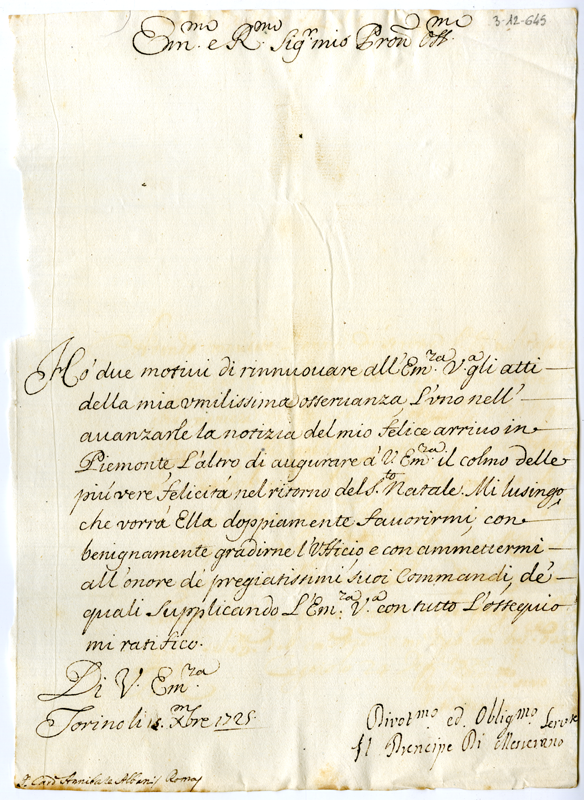 3-12-645
Em.mo e R.mo Sig.r mio Pron Oss.mo
Hò due motivi di rinnuouare all'Em.za V.a gli atti
della mia vmilissima osseruanza, L'vno nell'
auanzarle la notizia del mio felice arriuo in
Piemonte L'altro di augurare à V. Em.za il colmo delle
più vere felicità nel ritorno del S.to Natale. Mi lusingo,
che vorrà Ella doppiamente fauorirmi, con
benignamente gradirne l'Vfficio, e con ammettermi
all'onore de' pregiatissimi suoi Commandi, de'
quali Supplicando L'Em.za V.a con tutto L'ossequio
mi ratifico.
Di V. Em.za
Torino li 15. Xmbre 1725.
Divot.mo ed Oblig.mo Serv.re
Il Prencipe Di Messerano
S. Card Annibale Albani Roma